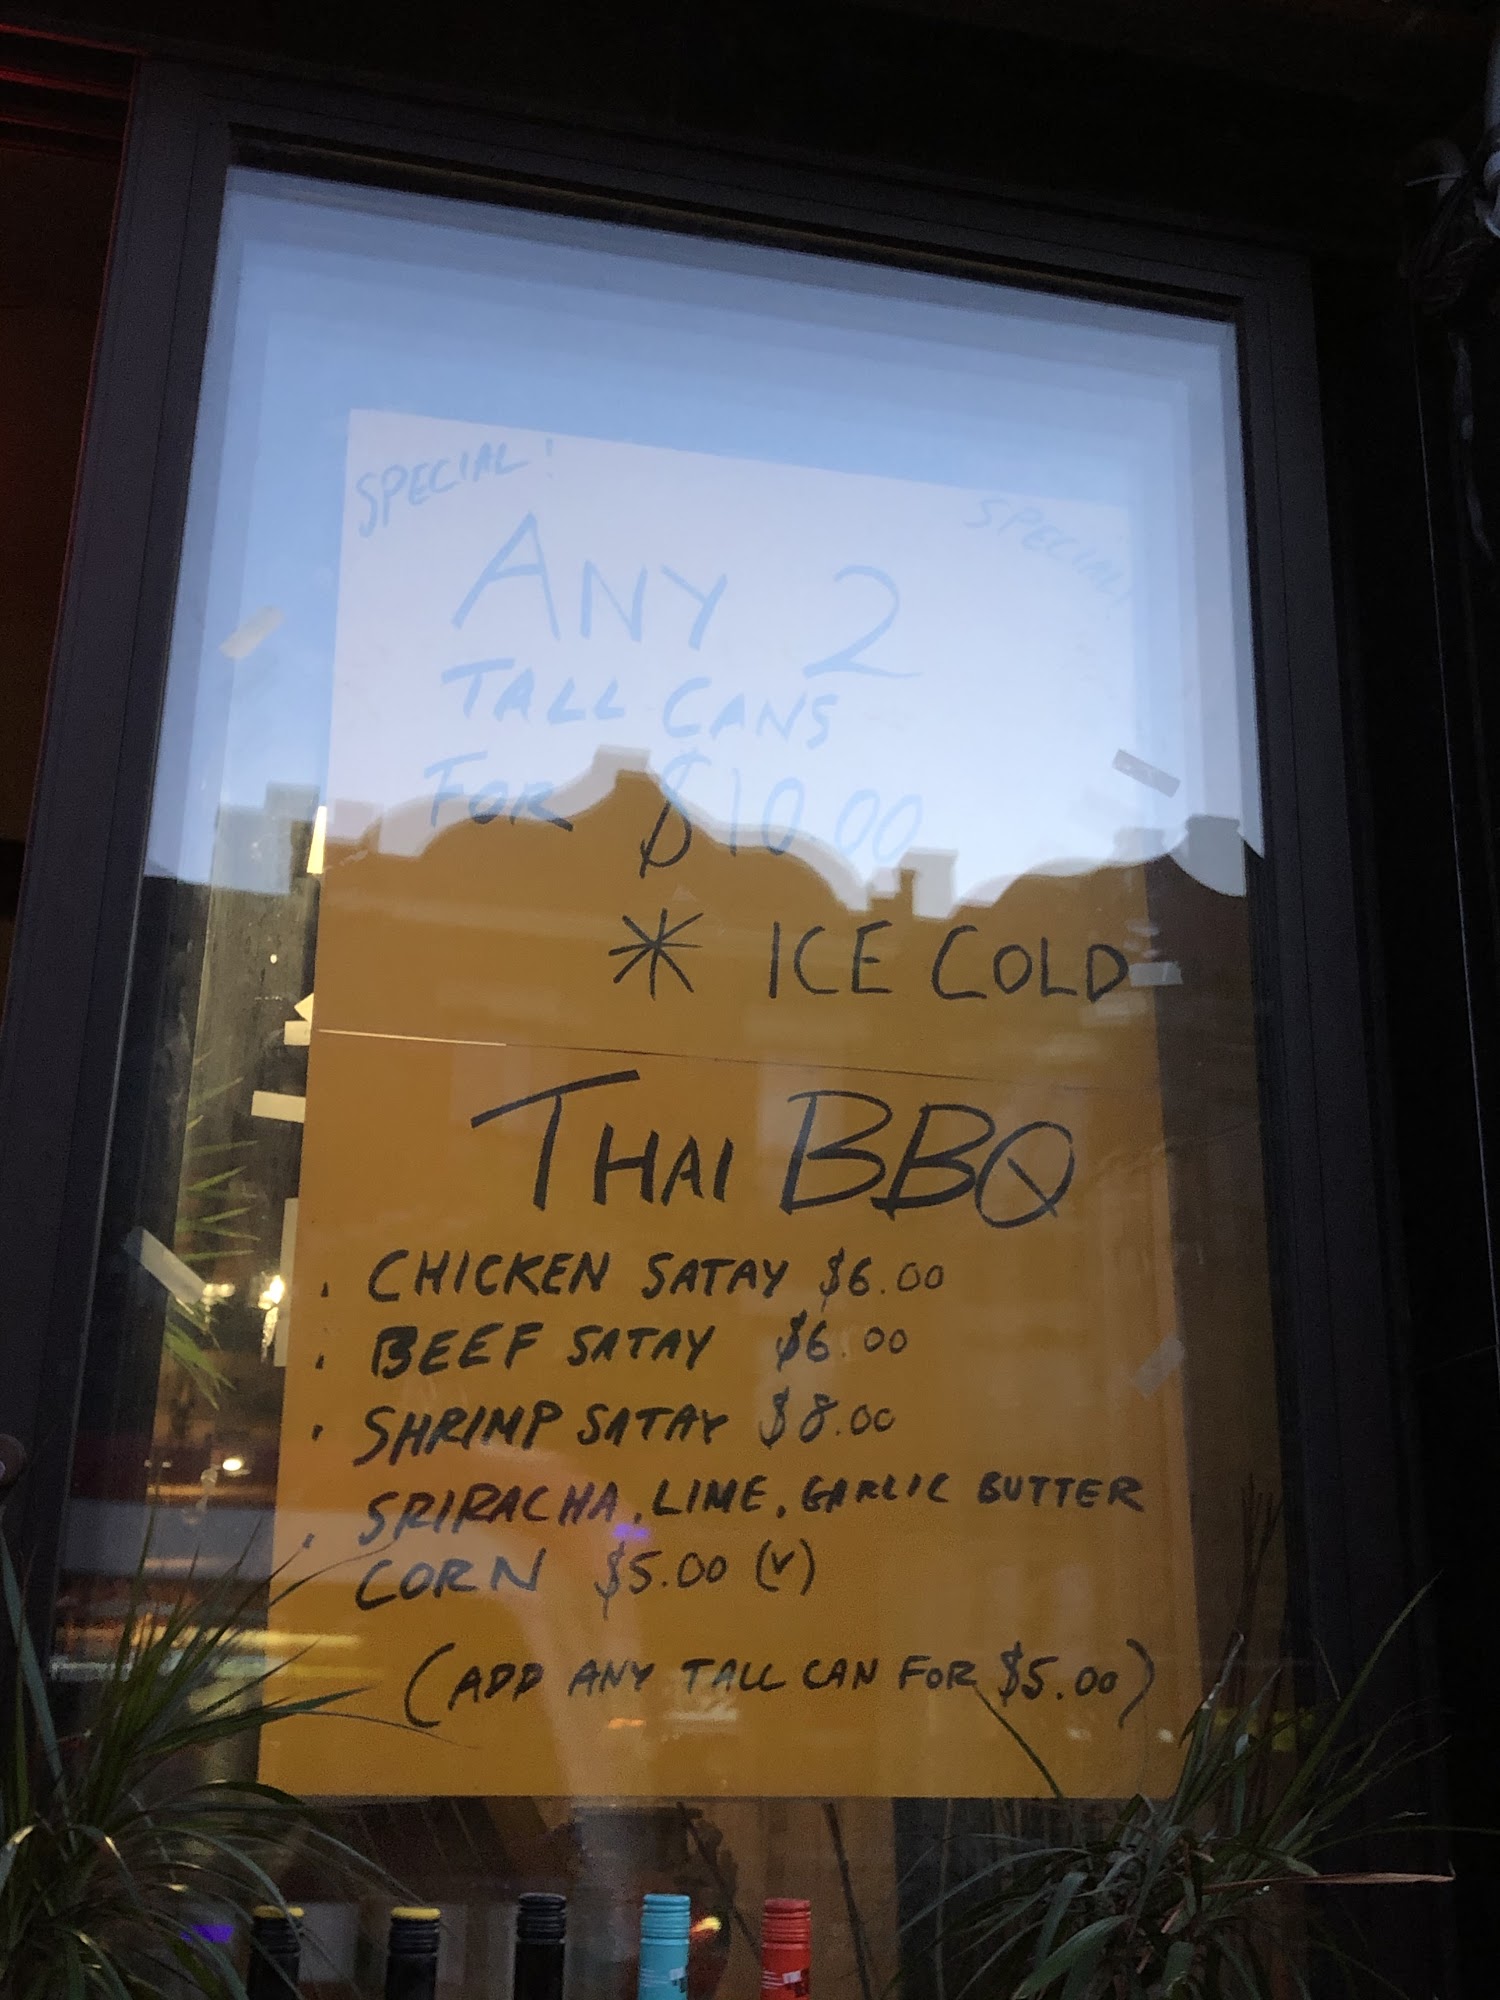 SPECIAL!
SPECIAL!
ANY 2
TALL CANS
FOR $10.00
* ICE COLD
THAI BBQ
· CHICKEN SATAY $6.00
· BEEF SATAY $6.00
· SHRIMP SATAY $8.00
· SRIRACHA, LIME, GARLIC BUTTER
CORN $5.00 (V)
(ADD ANY TALL CAN FOR $5.00)